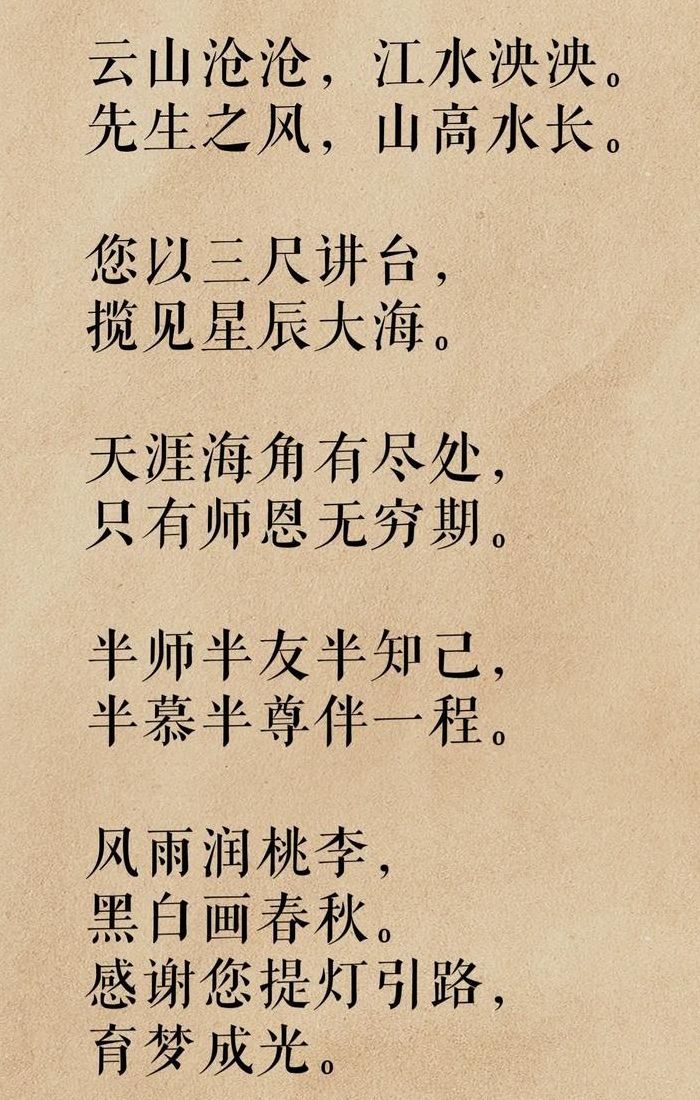 云山沧沧，江水泱泱。
先生之风，山高水长。
您以三尺讲台，
揽见星辰大海。
天涯海角有尽处，
只有师恩无穷期。
半师半友半知己，
半慕半尊伴一程。
风雨润桃李，
黑白画春秋。
感谢您提灯引路，
育梦成光。